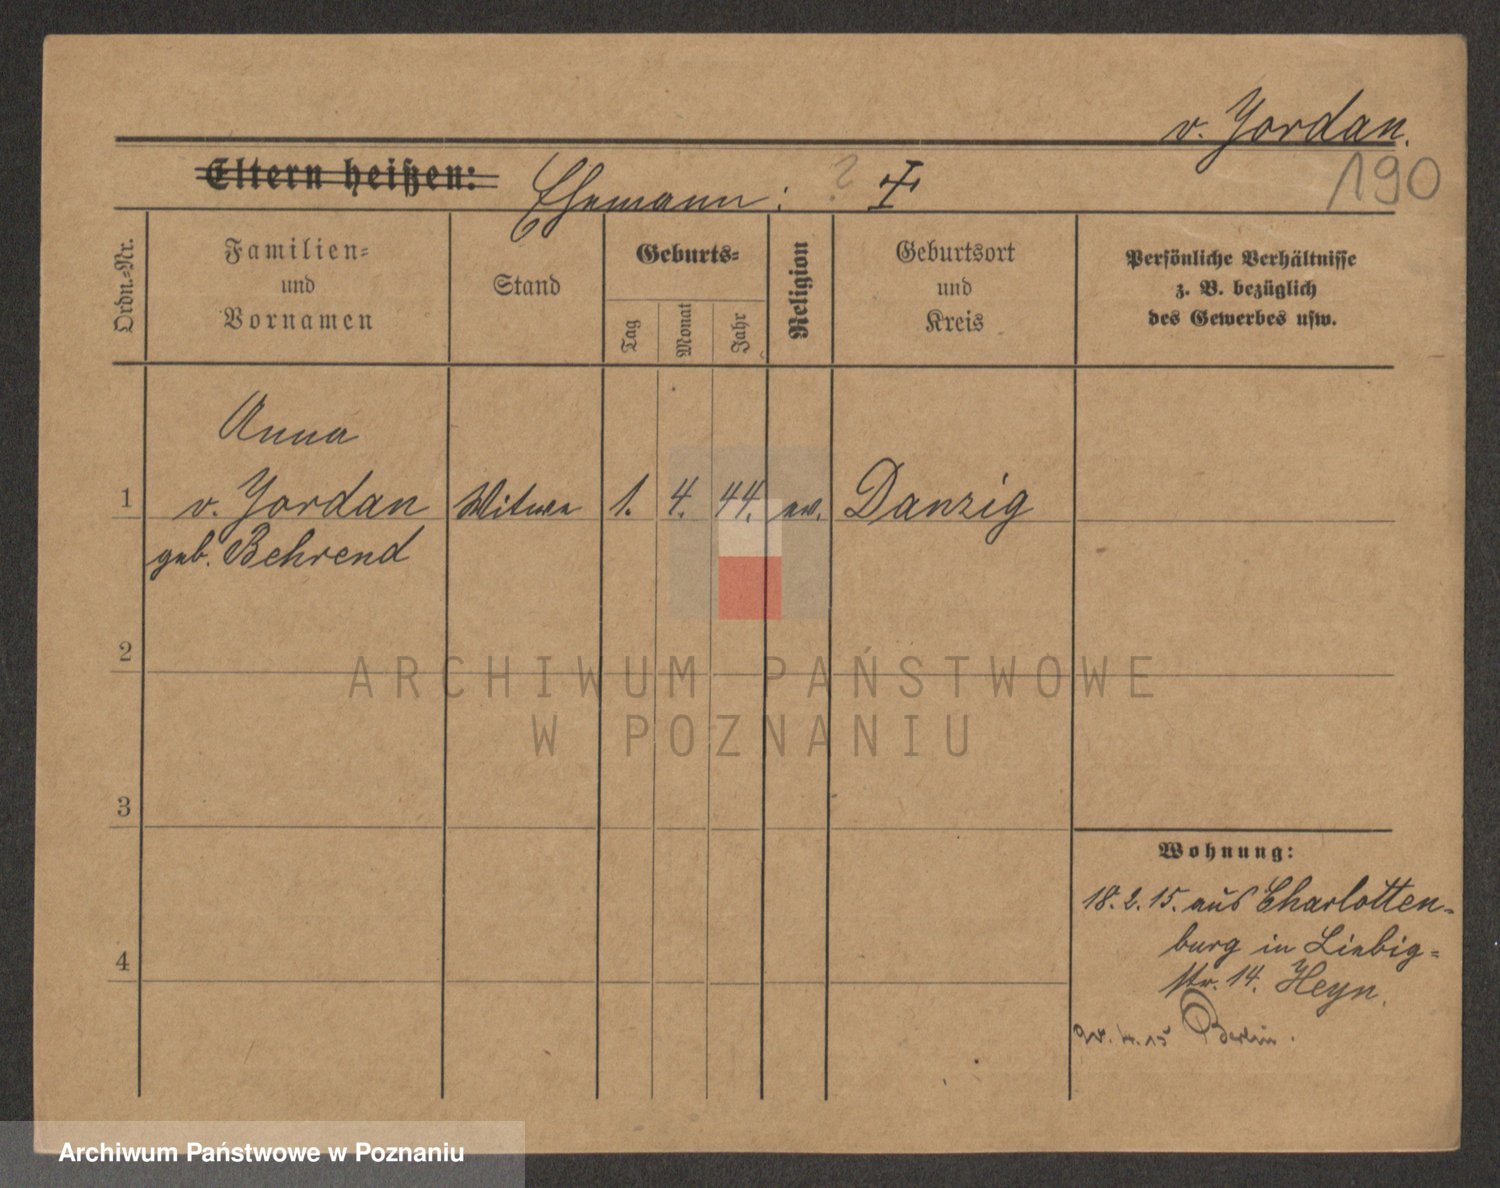 v. Jordan.
190
Eltern heißen: Ehemann: ?
Ordn.=Nr.
Familien=
und
Vornamen
Stand
Geburts=
Tag
Monat
Jahr
Religion
Geburtsort
und
Kreis
Persönliche Verhältnisse
z. B. bezüglich
des Gewerbes usw.
Anna
1 v. Jordan Witwe 1. 4. 44. ev. Danzig
geb. Behrend
2
ARCHIWUM PAŃSTWOWE
W POZNANIU
3
Wohnung:
18.2.15. aus Charlotten-
burg in Liebig=
4
str. 14. Heyn.
4.15 Berlin.
Archiwum Państwowe w Poznaniu